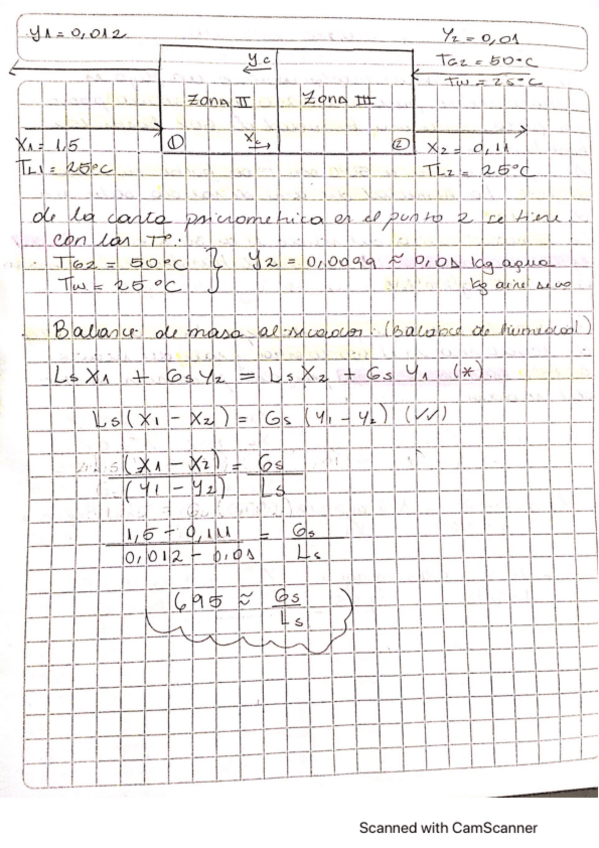 Y1 = 0,012
Y2 = 0,01
TG2 = 50°C
Tw = 25°C
Yc
Zona II
Zona III
Xc
①
②
X1 = 1,5
TL1 = 25°C
X2 = 0,111
TL2 = 25°C
de la carta psicrometrica en el punto 2 se tiene
con las T°.
TG2 = 50°C } Y2 = 0,0099 ≈ 0,01 kg agua
Tw = 25°C kg aire seco
Balance de masa al secador (Balance de humedad)
LsX1 + GsY2 = LsX2 + GsY1 (*)
Ls(X1 - X2) = Gs (Y1 - Y2) (✓✓)
(X1 - X2) = Gs
(Y1 - Y2) Ls
1,5 - 0,111 = Gs
0,012 - 0,01 Ls
695 ≈ Gs
Ls
Scanned with CamScanner